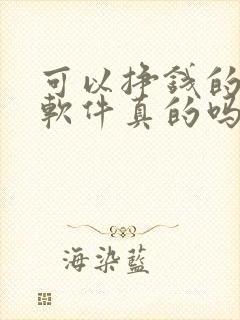 可以挣錢的
軟件真的吗
海染藍